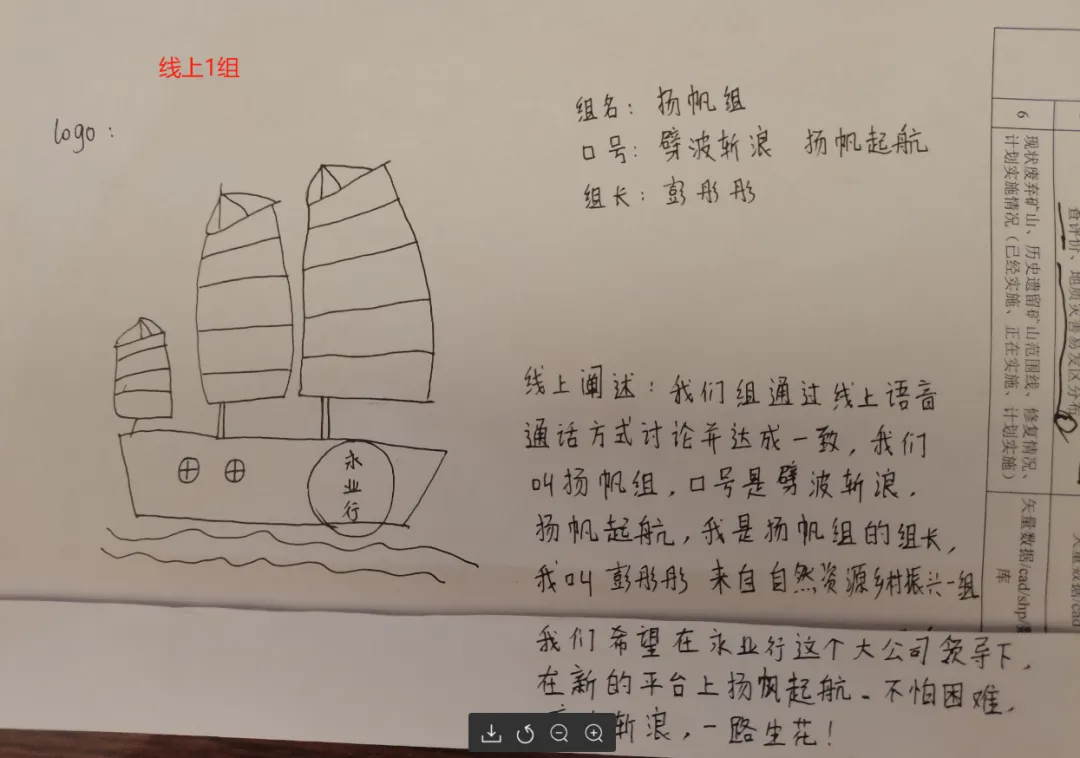 线上1组
logo:
组名：扬帆组
口号：劈波斩浪 扬帆起航
组长：彭彤彤
永
业
行
线上阐述：我们组通过线上语音
通话方式讨论并达成一致，我们
叫扬帆组，口号是劈波斩浪，
扬帆起航，我是扬帆组的组长，
我叫彭彤彤 来自自然资源乡村振兴一组
我们希望在永业行这个大公司领导下，
在新的平台上扬帆起航、不怕困难，
斩浪，一路生花！
6
现状废弃矿山、历史遗留矿山范围线、修复情况、
计划实施情况（已经实施、正在实施、计划实施）
矢量数据/cad/shp/
库
查评价、地质灾害易发区分布